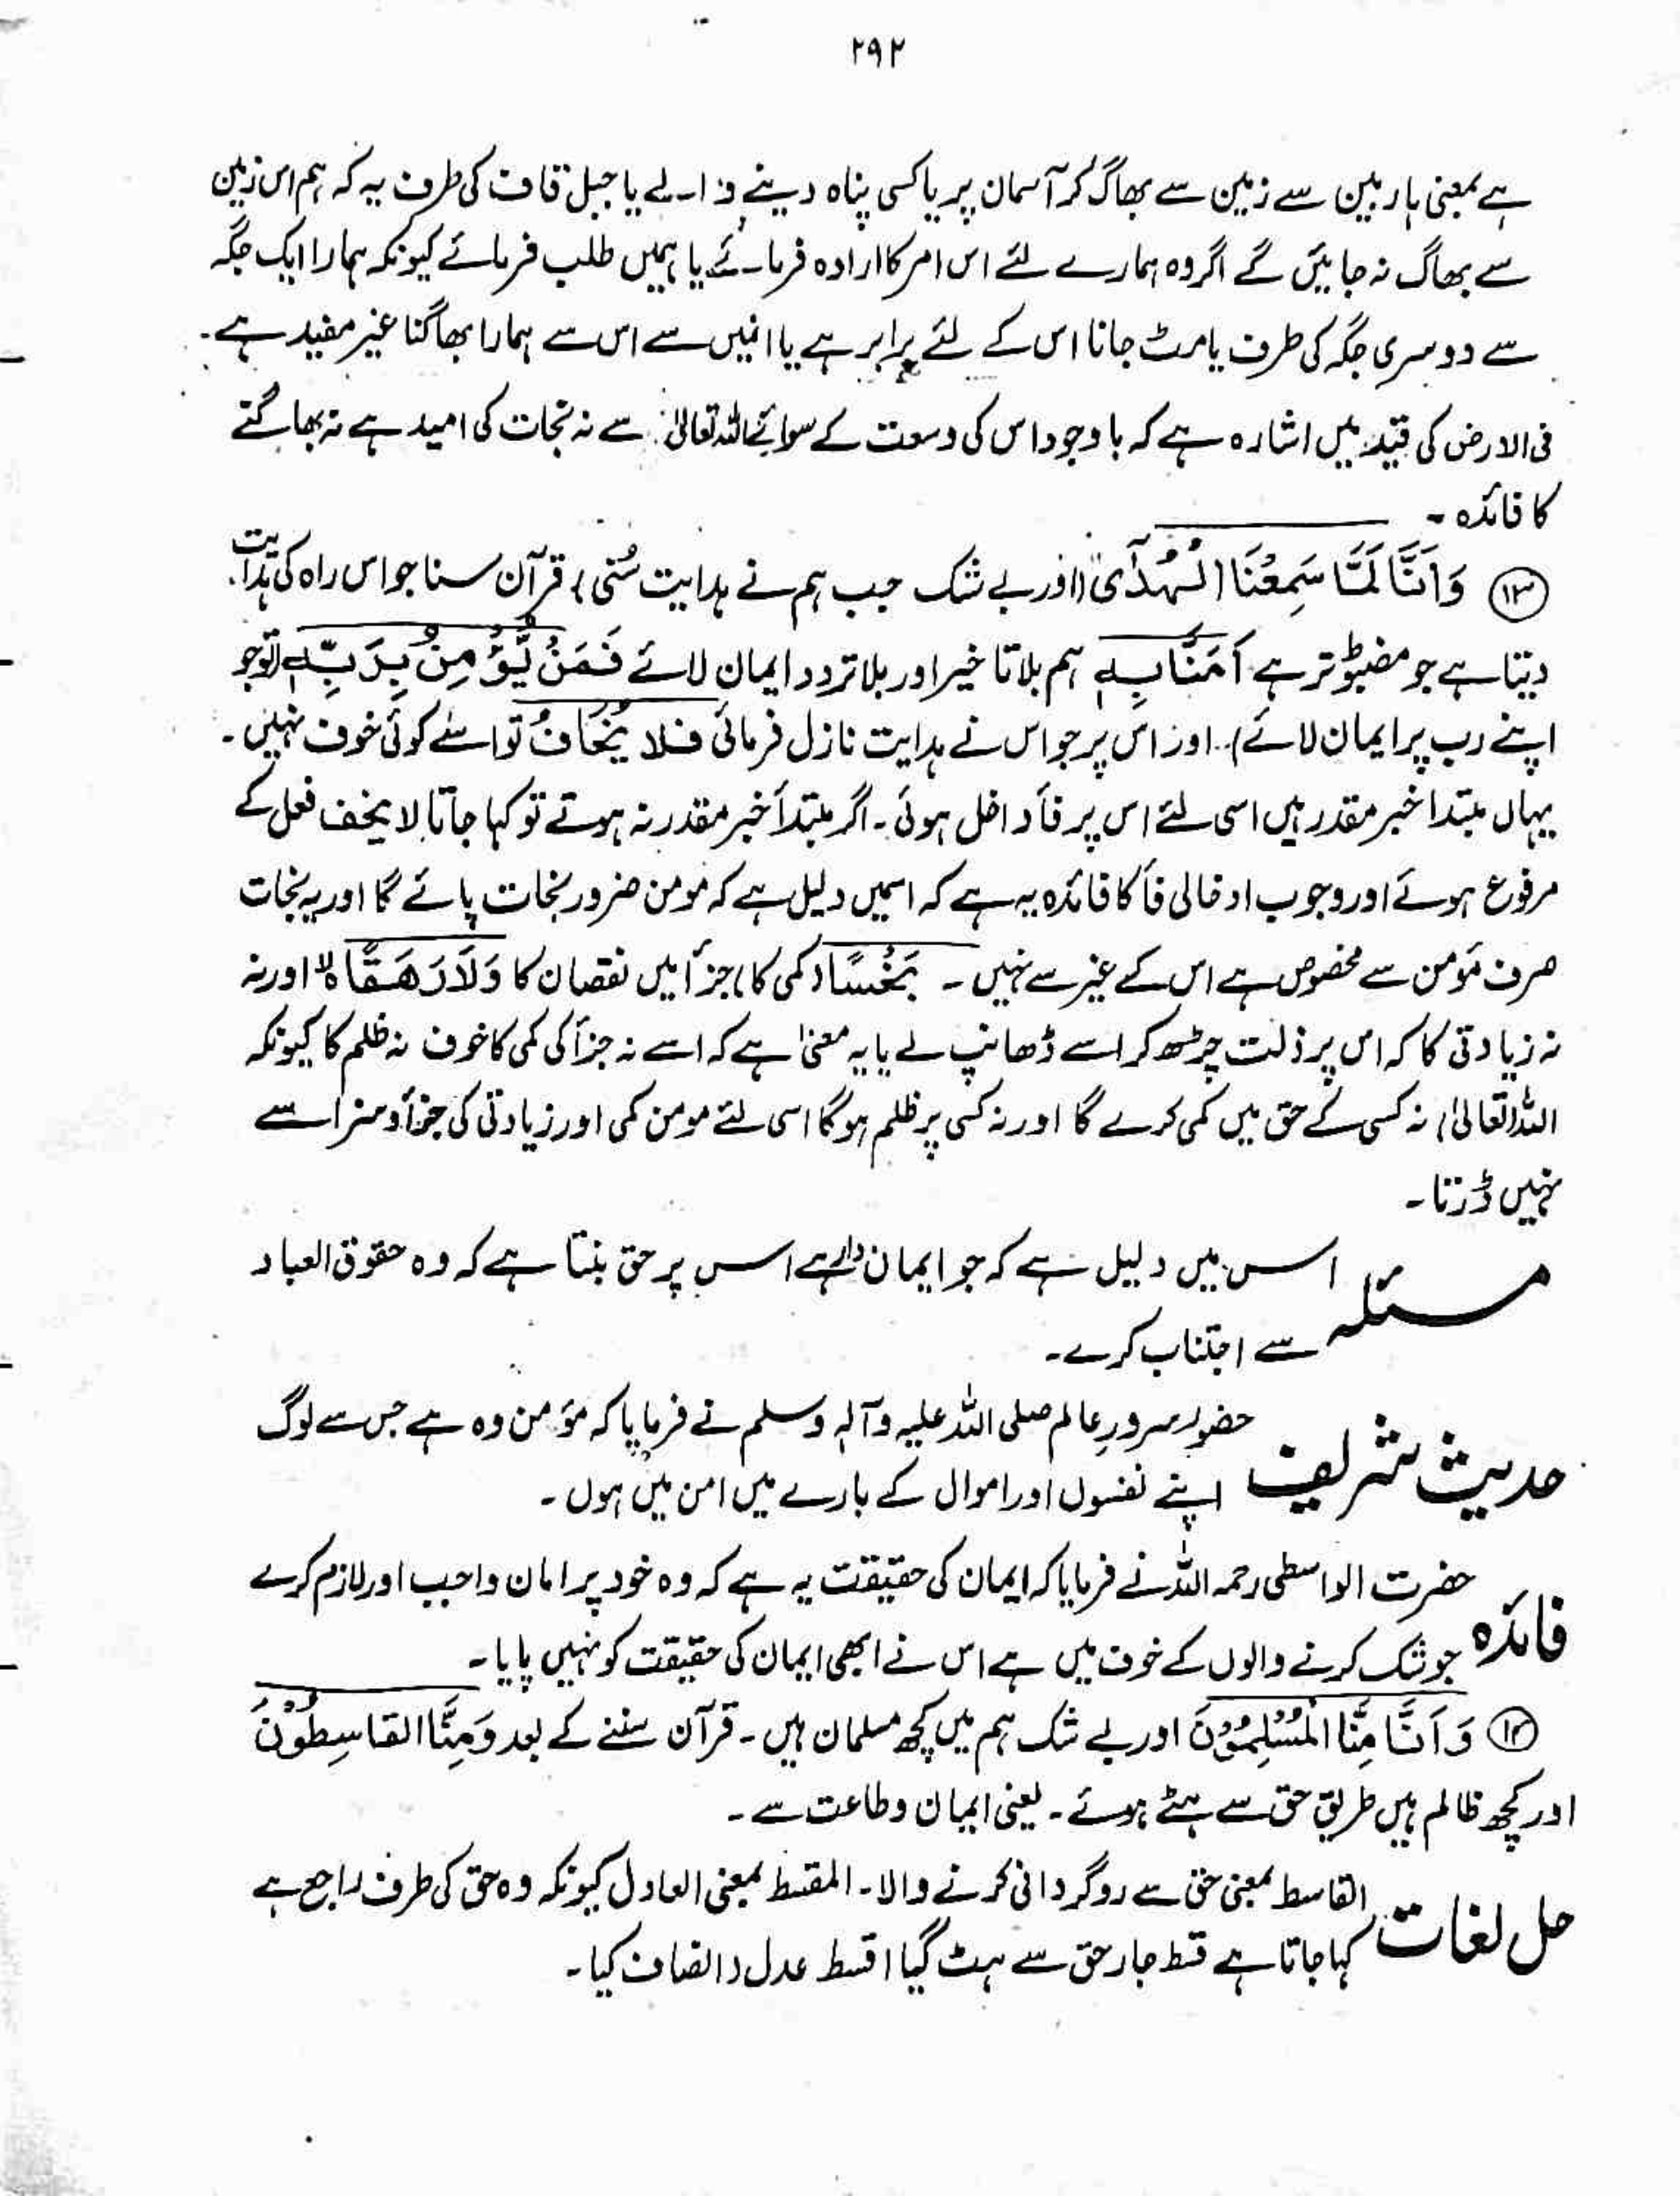 ۲۹۲
ہے بمعنی ہاربین سے زمین سے بھاگ کر آسمان پر یا کسی پناہ دینے والے یا جبل قاف کی طرف یہ کہ ہم اس زمین
سے بھاگ نہ جائیں گے اگر وہ ہمارے لئے اس امر کا ارادہ فرمائے یا ہمیں طلب فرمائے کیونکہ ہمارا ایک جگہ
سے دوسری جگہ کی طرف یا مرٹ جانا اس کے لئے برابر ہے یا انیں سے اس سے ہمارا بھاگنا غیر مفید ہے۔
فی الارض کی قید میں اشارہ ہے کہ باوجود اس کی وسعت کے سوائے اللہ تعالیٰ سے نہ نجات کی امید ہے نہ بھاگنے
کا فائدہ ۔
۱۳ وَاَنَّا لَمَّا سَمِعْنَا الْهُدٰٓى (اور بے شک جب ہم نے ہدایت سُنی) قرآن سنا جو اس راہ کی ہدایت
دیتا ہے جو مضبوط تر ہے اٰمَنَّا بِهٖ ہم بلا تاخیر اور بلا تردد ایمان لائے فَمَنْ يُّؤْمِنْ بِرَبِّهٖ (تو جو
اپنے رب پر ایمان لائے) اور اس پر جو اس نے ہدایت نازل فرمائی فلا يَخَافُ تو اسے کوئی خوف نہیں۔
یہاں مبتدا خبر مقدر ہیں اسی لئے اس پر فأ داخل ہوئی۔ اگر مبتدأ خبر مقدر نہ ہوتے تو کہا جاتا لا یخف فعل کے
مرفوع ہونے اور وجوب ادخالی فأ کا فائدہ یہ ہے کہ اسمیں دلیل ہے کہ مومن ضرور نجات پائے گا اور یہ نجات
صرف مؤمن سے مخصوص ہے اس کے غیر سے نہیں ۔ بَخْسًا (کمی کا) جزأ میں نقصان کا وَلَا رَهَقًا ہ اور نہ
نہ زیادتی کا کہ اس پر ذلت چڑھ کر اسے ڈھانپ لے یا یہ معنیٰ ہے کہ اسے نہ جزأ کی کمی کا خوف نہ ظلم کا کیونکہ
اللہ (تعالیٰ) نہ کسی کے حق میں کمی کرے گا اور نہ کسی پر ظلم ہوگا اسی لئے مومن کمی اور زیادتی کی جزأ و سزا سے
نہیں ڈرتا۔
مسئلہ اس میں دلیل ہے کہ جو ایمان دار ہے اس پر حق بنتا ہے کہ وہ حقوق العباد
سے اجتناب کرے۔
حدیث شریف حضور سرورِ عالم صلی اللہ علیہ وآلہ وسلم نے فرمایا کہ مؤمن وہ ہے جس سے لوگ
اپنے نفسوں اور اموال کے بارے میں امن میں ہوں ۔
فائدہ حضرت الواسطی رحمہ اللہ نے فرمایا کہ ایمان کی حقیقت یہ ہے کہ وہ خود پر امان واجب اور لازم کرے
جو شک کرنے والوں کے خوف میں ہے اس نے ابھی ایمان کی حقیقت کو نہیں پایا ۔
۱۴ وَاَنَّا مِنَّا الْمُسْلِمُوْنَ اور بے شک ہم میں کچھ مسلمان ہیں ۔ قرآن سننے کے بعد وَمِنَّا القَاسِطُوْنَ
اور کچھ ظالم ہیں طریق حق سے ہٹے ہوئے ۔ یعنی ایمان و طاعت سے ۔
حل لغات القاسط بمعنی حق سے روگردانی کرنے والا ۔ المقسط بمعنی العادل کیونکہ وہ حق کی طرف راجع ہے
کہا جاتا ہے قسط جار حق سے ہٹ گیا اقسط عدل (انصاف کیا۔